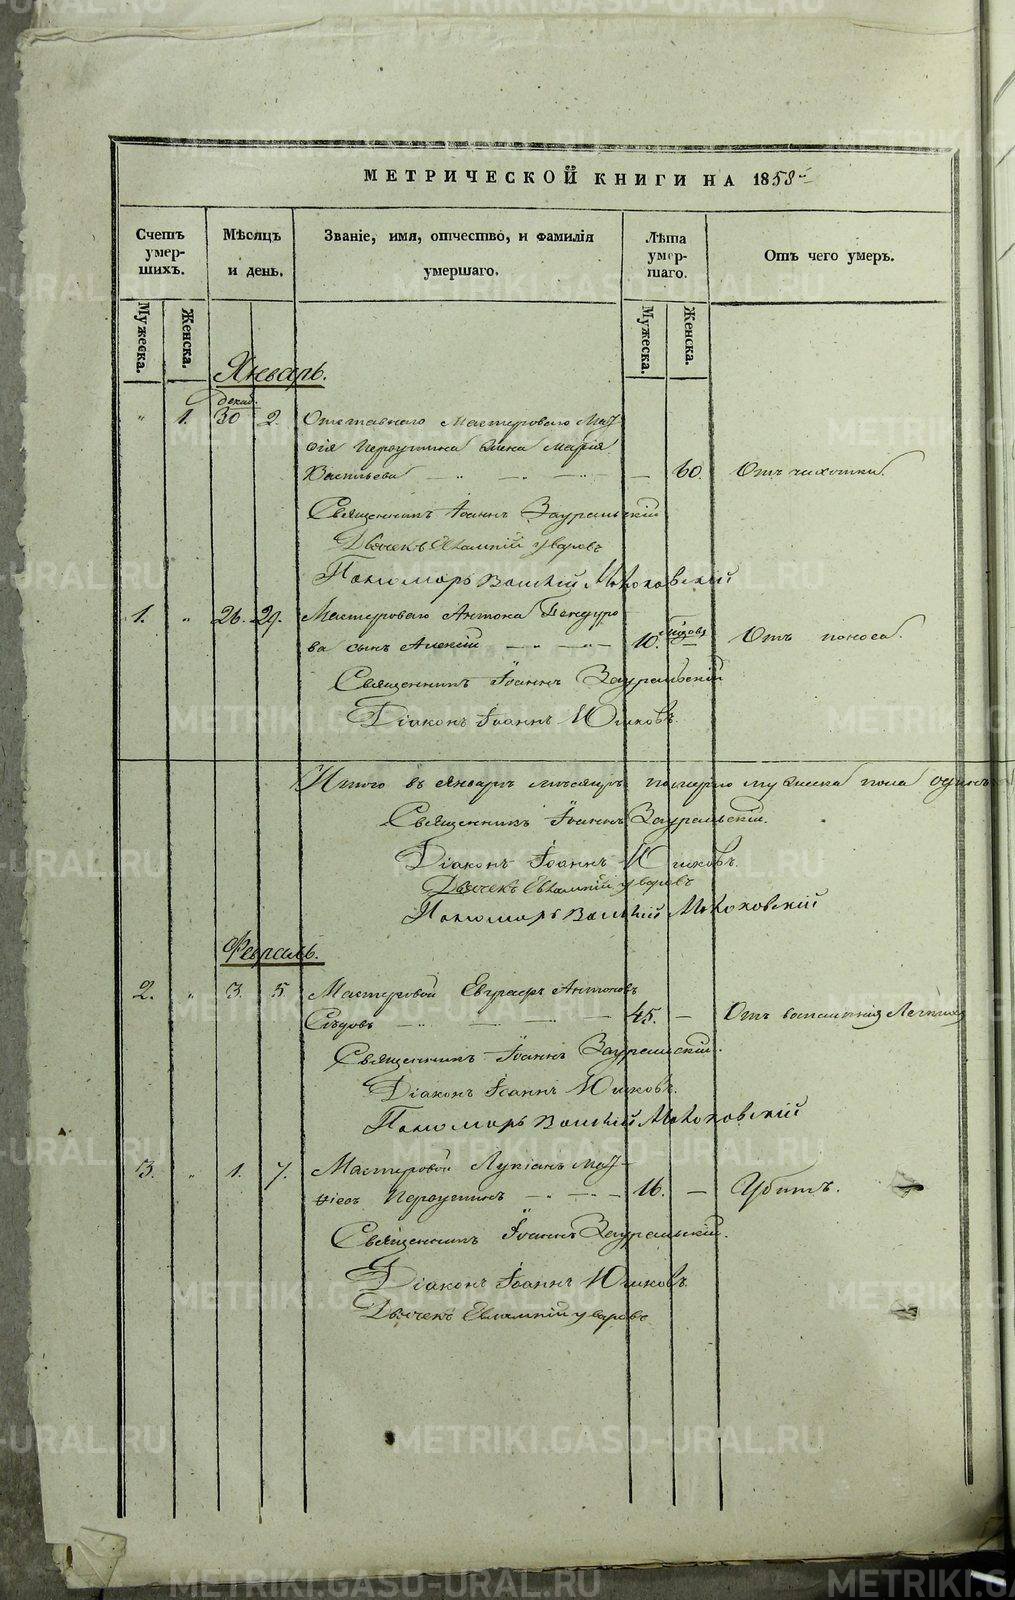 МЕТРИЧЕСКОЙ КНИГИ НА 1858
Счетъ умер-шихъ.
Мѣсяцъ и день.
Званіе, имя, отчество, и фамилія умершаго.
Лѣта умер-шаго.
Отъ чего умеръ.
Мужеска.
Женска.
Мужеска.
Женска.
Январь.
декаб.
" 1. 30 2. Отставнаго Мастероваго Маѳ
ѳія Первушина жена Марія
Васильева — 60. Отъ чахотки.
Священникъ Іоаннъ Зауральскій
Дьячекъ Евлампій Уваровъ
Пономарь Василій
1. " 26. 29. Мастероваго Антона
ва сынъ Алексій — 10. Отъ поноса.
Священникъ Іоаннъ Зауральскій
Діаконъ Іоаннъ Юшковъ.
Итого въ Январѣ мѣсяцѣ померло мужеска пола одинъ
Священникъ Іоаннъ Зауральскій.
Діаконъ Іоаннъ Юшковъ.
Дьячекъ Евлампій Уваровъ
Пономарь Василій
Февраль.
2. " 3. 5 Мастеровой Евграфъ Антоновъ
Сѣдовъ — 45. — Отъ воспаленія Легкихъ
Священникъ Іоаннъ Зауральскій.
Діаконъ Іоаннъ Юшковъ.
Пономарь Василій
3. " 1. 7. Мастеровой Лукіанъ Маѳ
ѳіевъ Первушинъ — 16. — Убитъ.
Священникъ Іоаннъ Зауральскій.
Діаконъ Іоаннъ Юшковъ
Дьячекъ Евлампій Уваровъ
METRIKI.GASO-URAL.RU